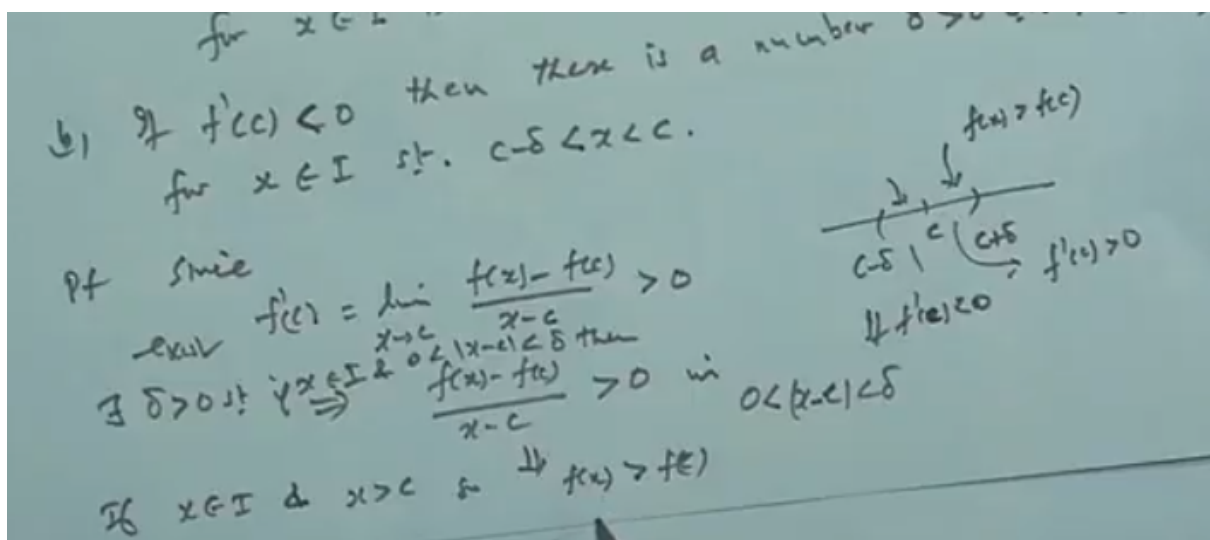 for x ∈ I
b) If f'(c) < 0 then there is a number δ > 0
for x ∈ I st. c-δ < x < c.
f(x) > f(c)
c-δ c c+δ
f'(c) > 0
If f'(c) < 0
Pf Since
f'(c) = lim x→c (f(x) - f(c))/(x-c) > 0
exist
∃ δ > 0 st if x ∈ I & 0 < |x-c| < δ then
⇒ (f(x) - f(c))/(x-c) > 0 in 0 < |x-c| < δ
If x ∈ I & x > c so ⇓ f(x) > f(c)